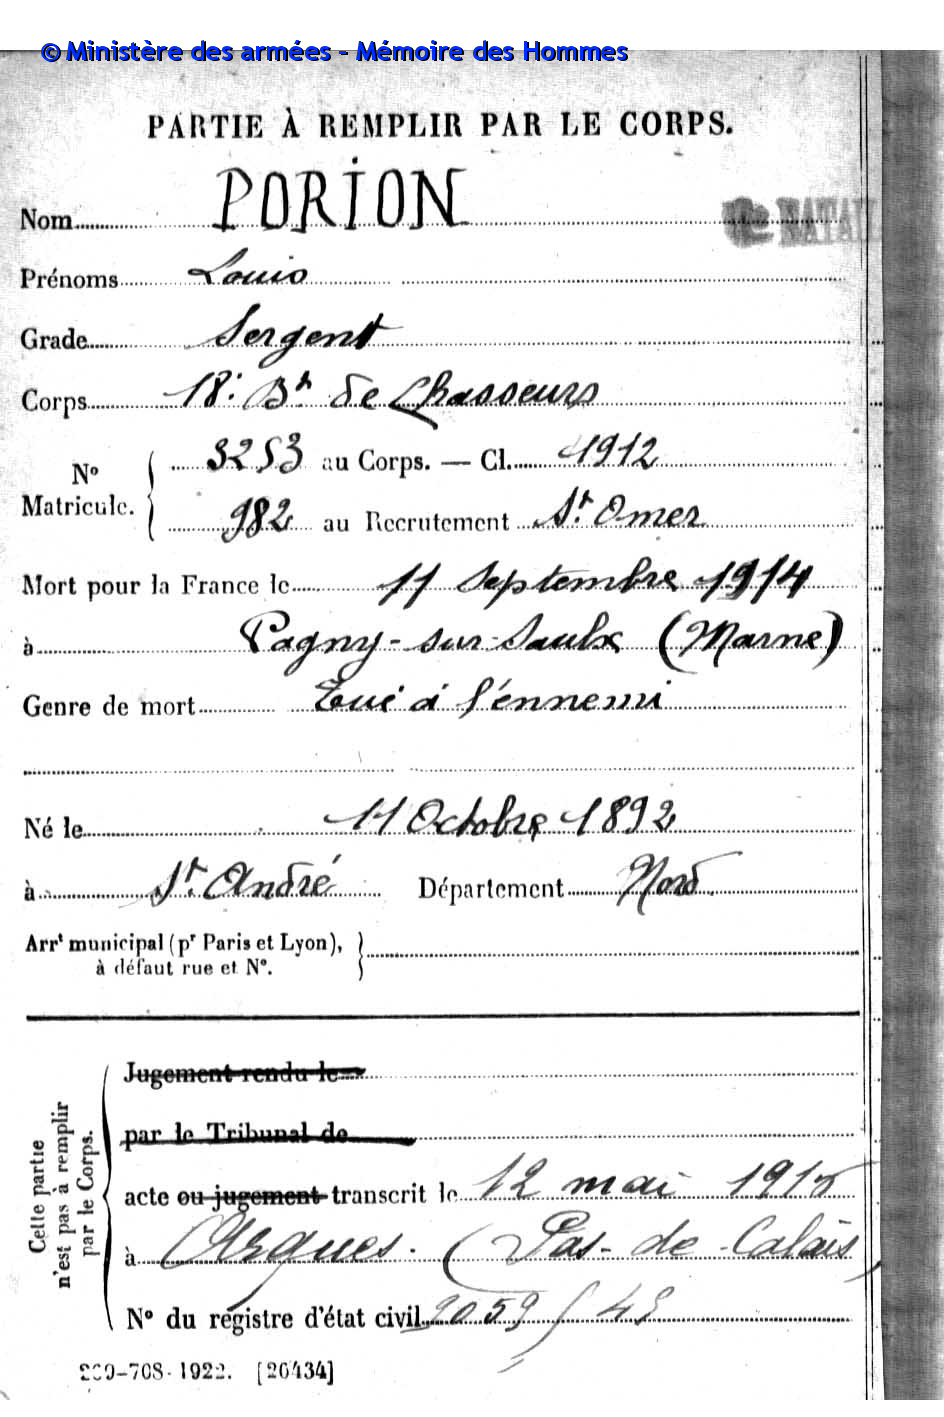 © Ministère des armées - Mémoire des Hommes
PARTIE À REMPLIR PAR LE CORPS.
Nom PORION
Prénoms Louis
Grade Sergent
Corps 18e Bn de Chasseurs
No Matricule. 3253 au Corps. — Cl. 1912
982 au Recrutement St Omer
Mort pour la France le 11 Septembre 1914
à Pagny-sur-Saulx (Marne)
Genre de mort Tué à l'ennemi
Né le 11 Octobre 1892
à St André Département Nord
Arrt municipal (pr Paris et Lyon),
à défaut rue et No.
Cette partie n'est pas à remplir par le Corps.
Jugement rendu le
par le Tribunal de
acte ou jugement transcrit le 12 mai 1915
à Arques. (Pas-de-Calais)
No du registre d'état civil 2059/
-708-1922. [26434]